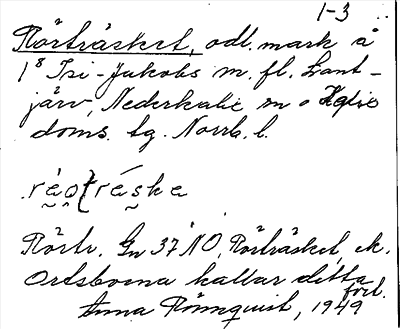 1-3
Rörträsket, odl. mark å
1⁸ Isi-Jakobs m. fl. Lant-
järv, Nederkalix sn o
doms. tg. Norrb. l.
Rörtr. Gn 37 NO, Rörträsket, ek.
Ortsborna kallar detta
förl.
Anna Rönnquist, 1949